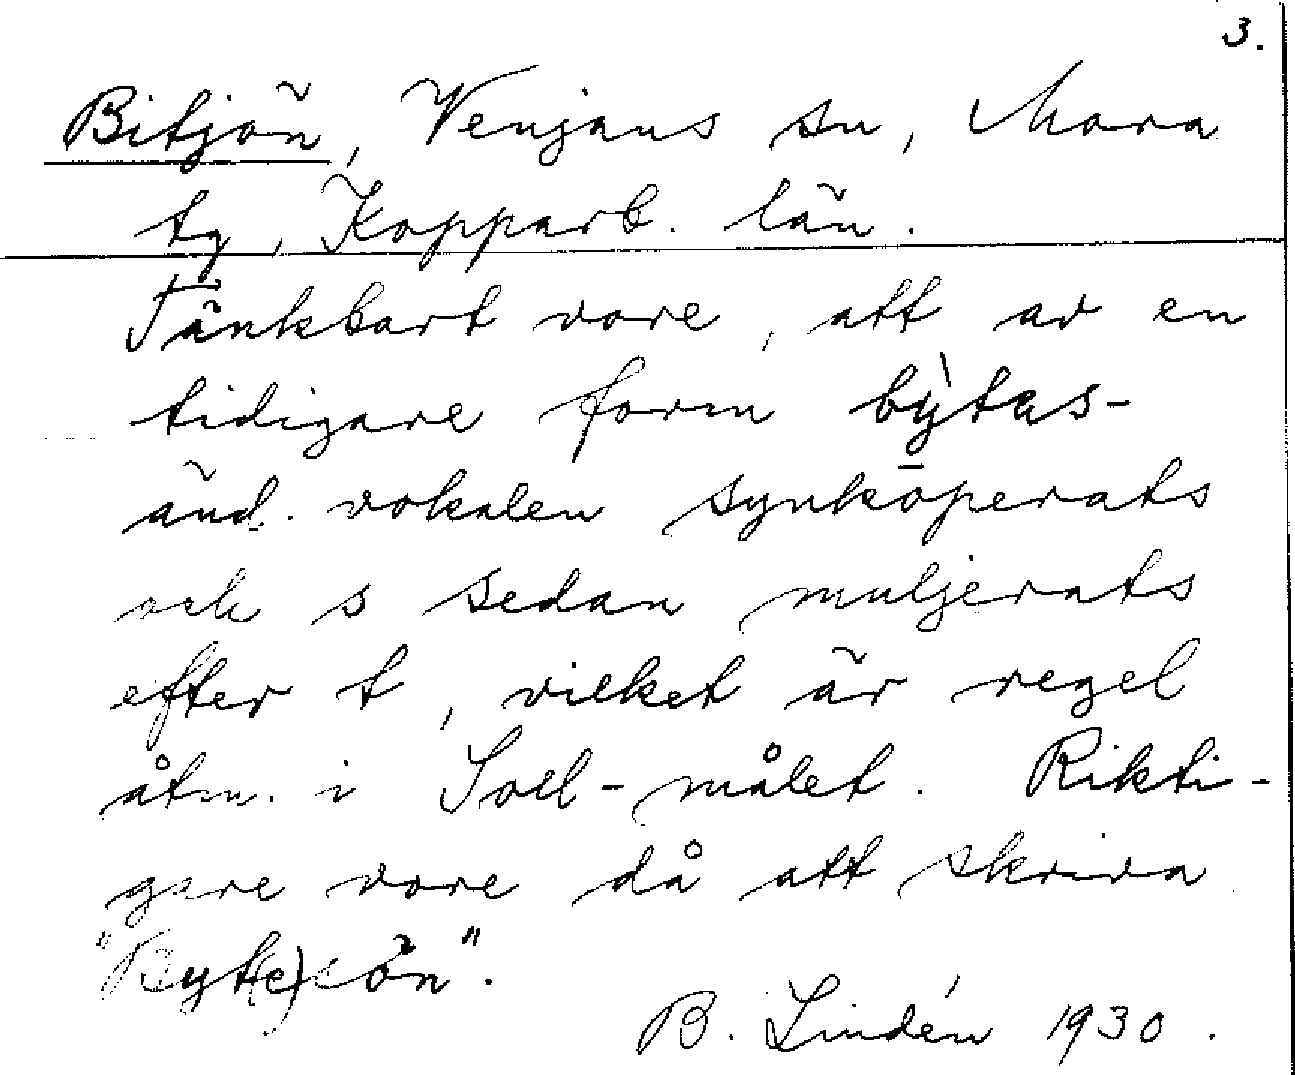 3.
Bitjön, Venjans sn, Mora
tg, Kopparb. län.
Tänkbart vore, att av en
tidigare form bỳtas-
änd. vokalen synkōperats
och s sedan muljerats
efter t, vilket är regel
åtm. i Soll-målet. Rikti-
gare vore då att skriva
"Byt(e)sön".
B. Lindén 1930.